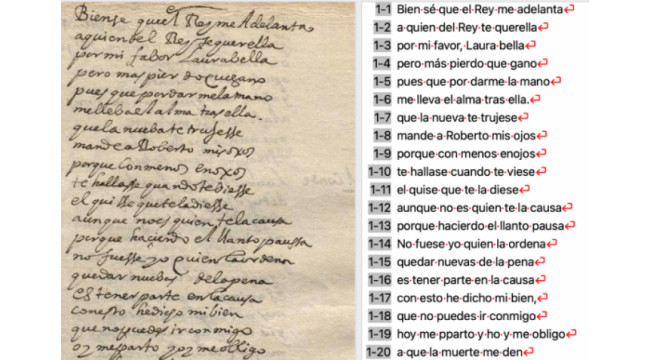 Biense queel Rey me Adelanta
aquiendel Rey sequerella
por mi fabor Laurabella
pero mas pierdo que gano
pues que pordar mela mano
melleba el alma tras ella.
quela nueba te trujesse
mande a Roberto mis oxos
porque con menos enoxos
te hallasse quando te biesse
el quisse que te la diesse
aunque noes quien te la causa
porque haciendo el llanto paussa
no fuesse yo quien la ordena
quedar nuebas dela pena
es tener parte en la causa
con esto hedicho mi bien
que no puedes ir conmigo
oy me parto y oy me obligo
1-1 Bien sé que el Rey me adelanta
1-2 a quien del Rey te querella
1-3 por mi favor, Laura bella
1-4 pero más pierdo que gano
1-5 pues que por darme la mano
1-6 me lleva el alma tras ella.
1-7 que la nueva te trujese
1-8 mande a Roberto mis ojos
1-9 porque con menos enojos
1-10 te hallase cuando te viese
1-11 el quise que te la diese
1-12 aunque no es quien te la causa
1-13 porque hacierdo el llanto pausa
1-14 No fuese yo quien la ordena
1-15 quedar nuevas de la pena
1-16 es tener parte en la causa
1-17 con esto he dicho mi bien,
1-18 que no puedes ir conmigo
1-19 hoy me pparto y ho y me obligo
1-20 a que la muerte me den